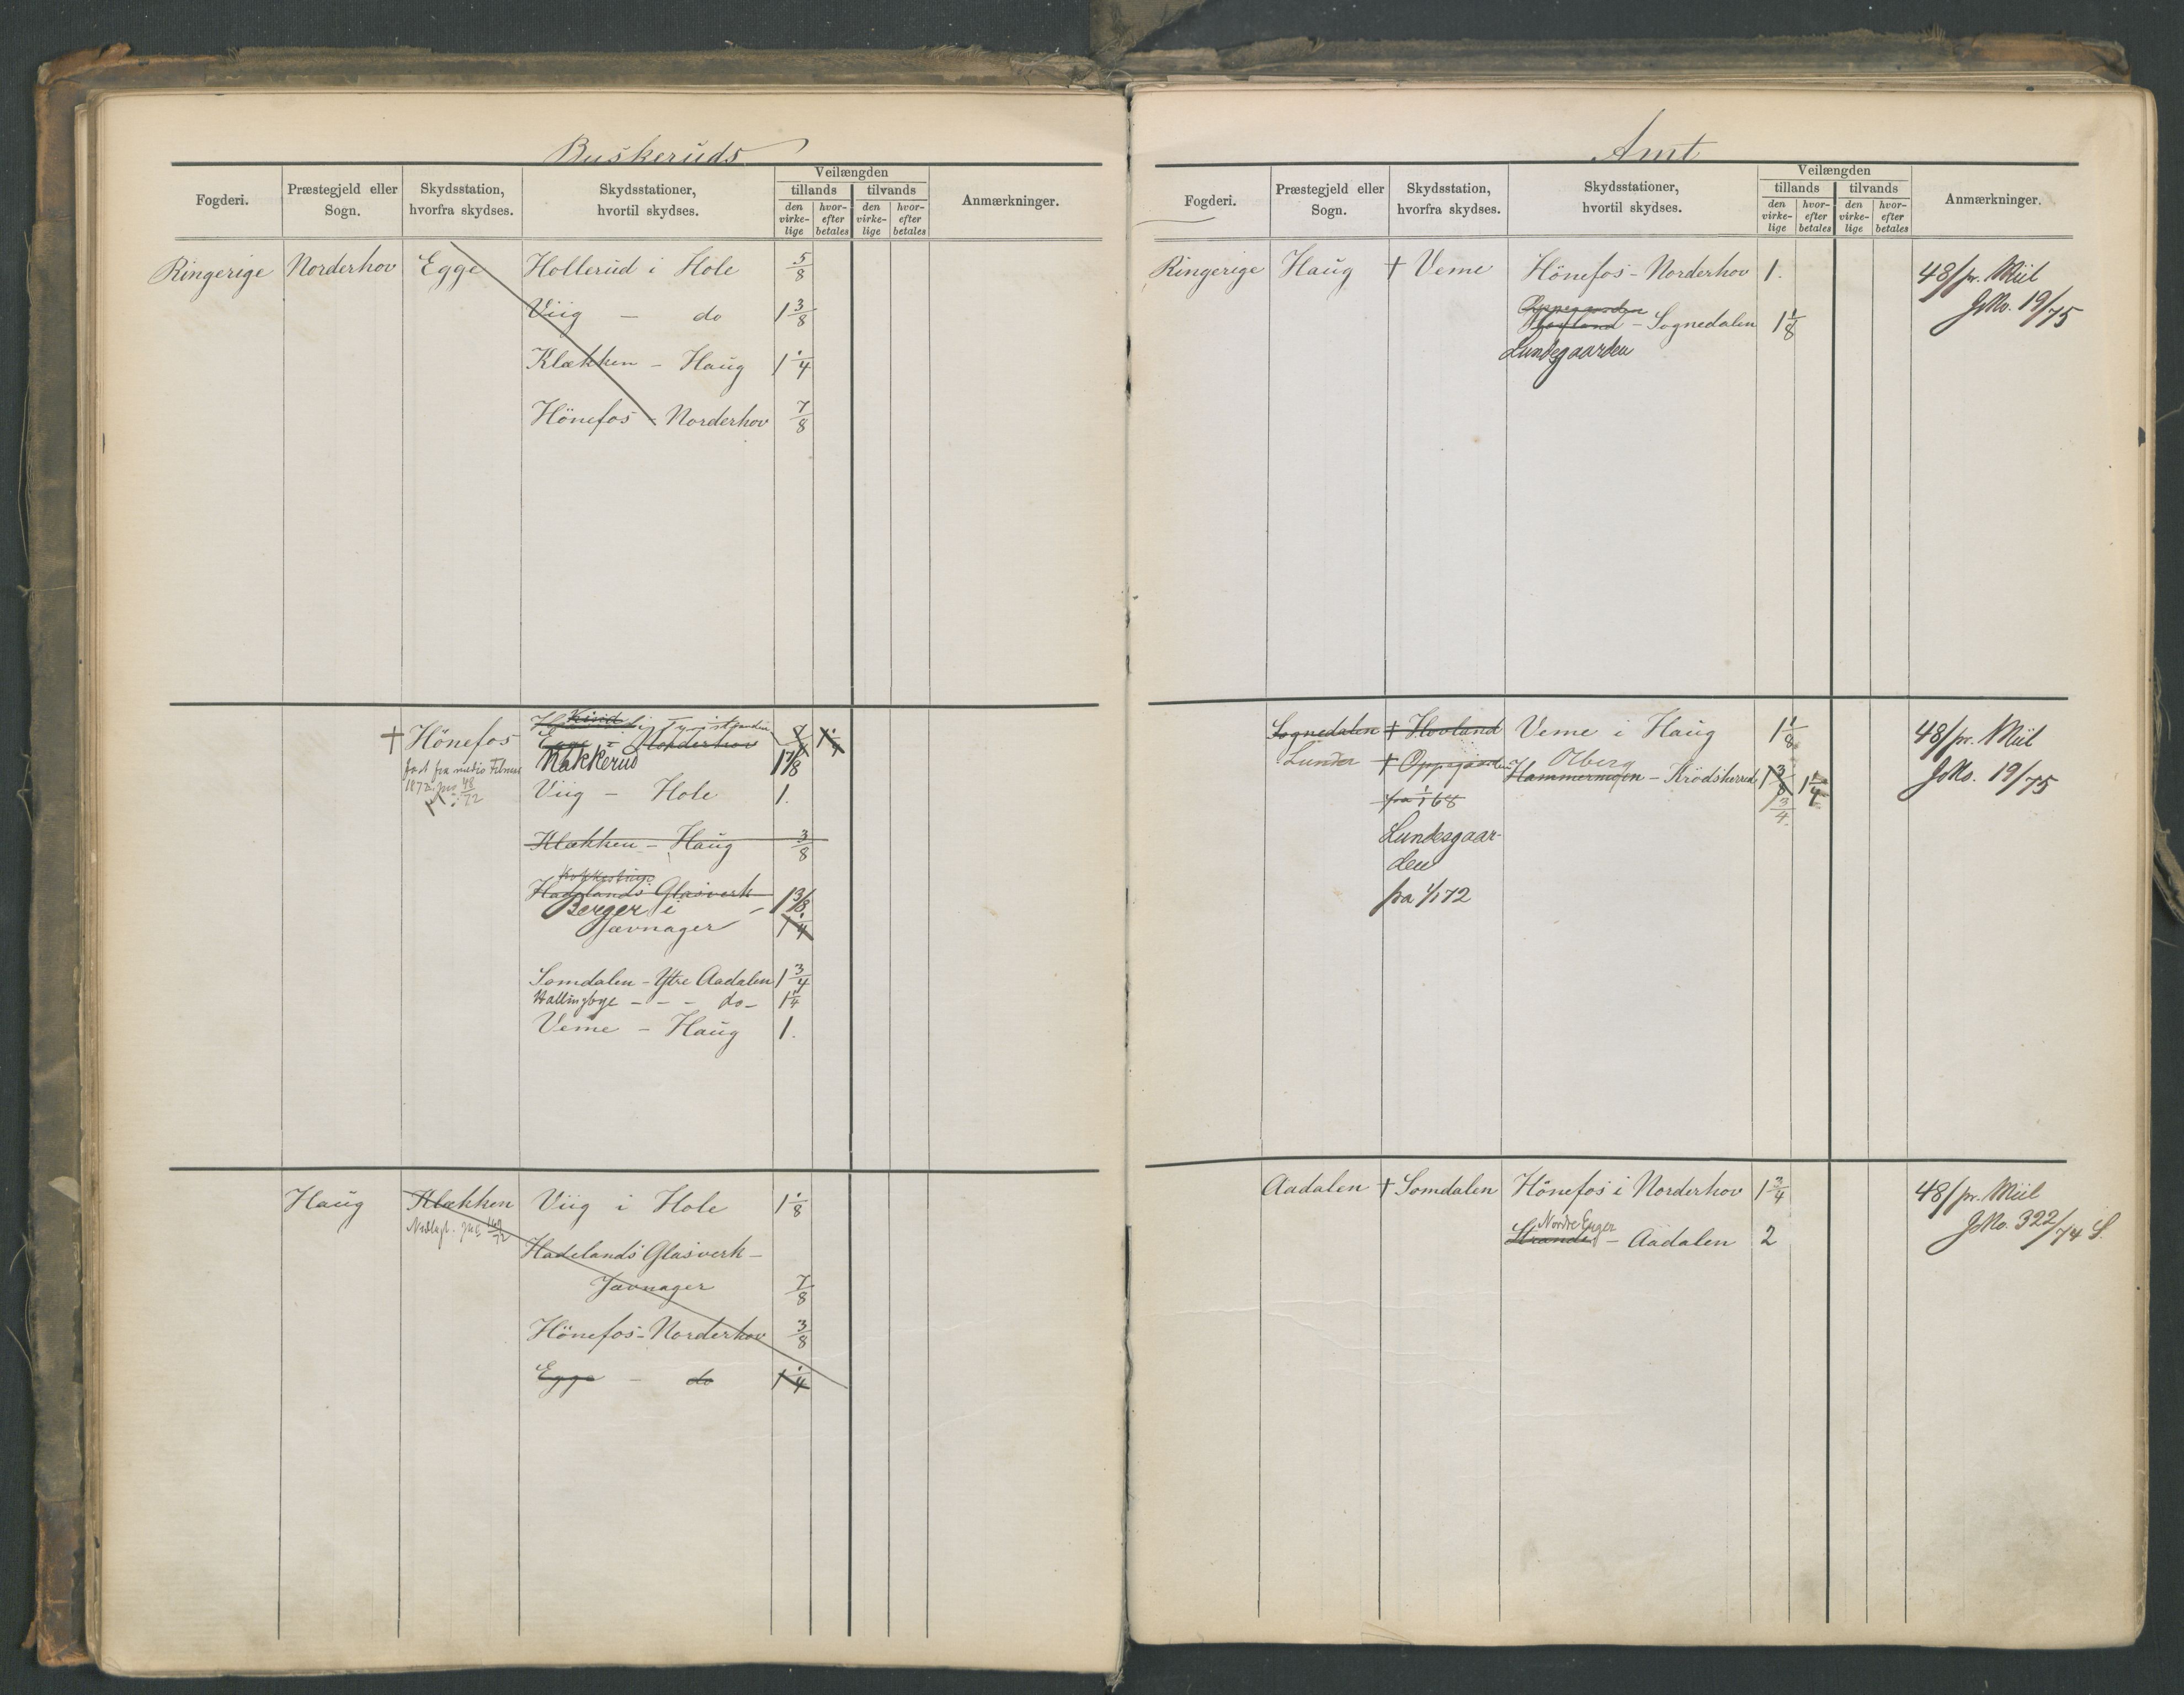 Buskeruds
Fogderi. Præstegjeld eller Sogn. Skydsstation, hvorfra skydses. Skydsstationer, hvortil skydses. Veilængden Anmærkninger.
tillands tilvands
den virkelige hvorefter betales den virkelige hvorefter betales
Ringerige Norderhov Egge Hollerud i Hole 5/8
Viig - do 1 3/8
Klækken - Haug 1 1/4
Hönefos - Norderhov 7/8
† Hönefos
Egge i Norderhov 7/8 1 1/4
Kakkerud 1 7/8
fast fra medio Februar
1872
Viig - Hole 1.
Klækken - Haug 3/8
Hadelands Glasverk
Berger i - 1 3/8
Jævnager 1 1/4
Somdalen - Ytre Aadalen 1 3/4
Hallingbye - - - do - 1 1/4
Veme - Haug 1.
Haug Klækken Viig i Hole 1 1/8
Nedlagt.
Hadelands Glasverk -
Jævnager 7/8
Hönefos - Norderhov 3/8
Egge - do 1 1/4
Amt
Fogderi. Præstegjeld eller Sogn. Skydsstation, hvorfra skydses. Skydsstationer, hvortil skydses. Veilængden Anmærkninger.
tillands tilvands
den virkelige hvorefter betales den virkelige hvorefter betales
Ringerige Haug † Veme Hönefos - Norderhov 1. 48/ pr. Miil
JNo. 19/75
Oppegaarden
Hovland - Sognedalen 1 1/8
Lundesgaarden
Sognedalen † Hovland Veme i Haug 1 1/8 48/ pr. Miil
Lunder † Oppegaarden Olberg JNo. 19/75
Hammermoen - Krödsherred 1 3/8 1 1/4
fra 1/1 68 3/4
Lundesgaar-
den
fra 1/1 72
Aadalen † Somdalen Hönefos i Norderhov 1 3/4 48/ pr. Miil
JNo. 322/74 S.
Nordre Enger
Strande - Aadalen 2